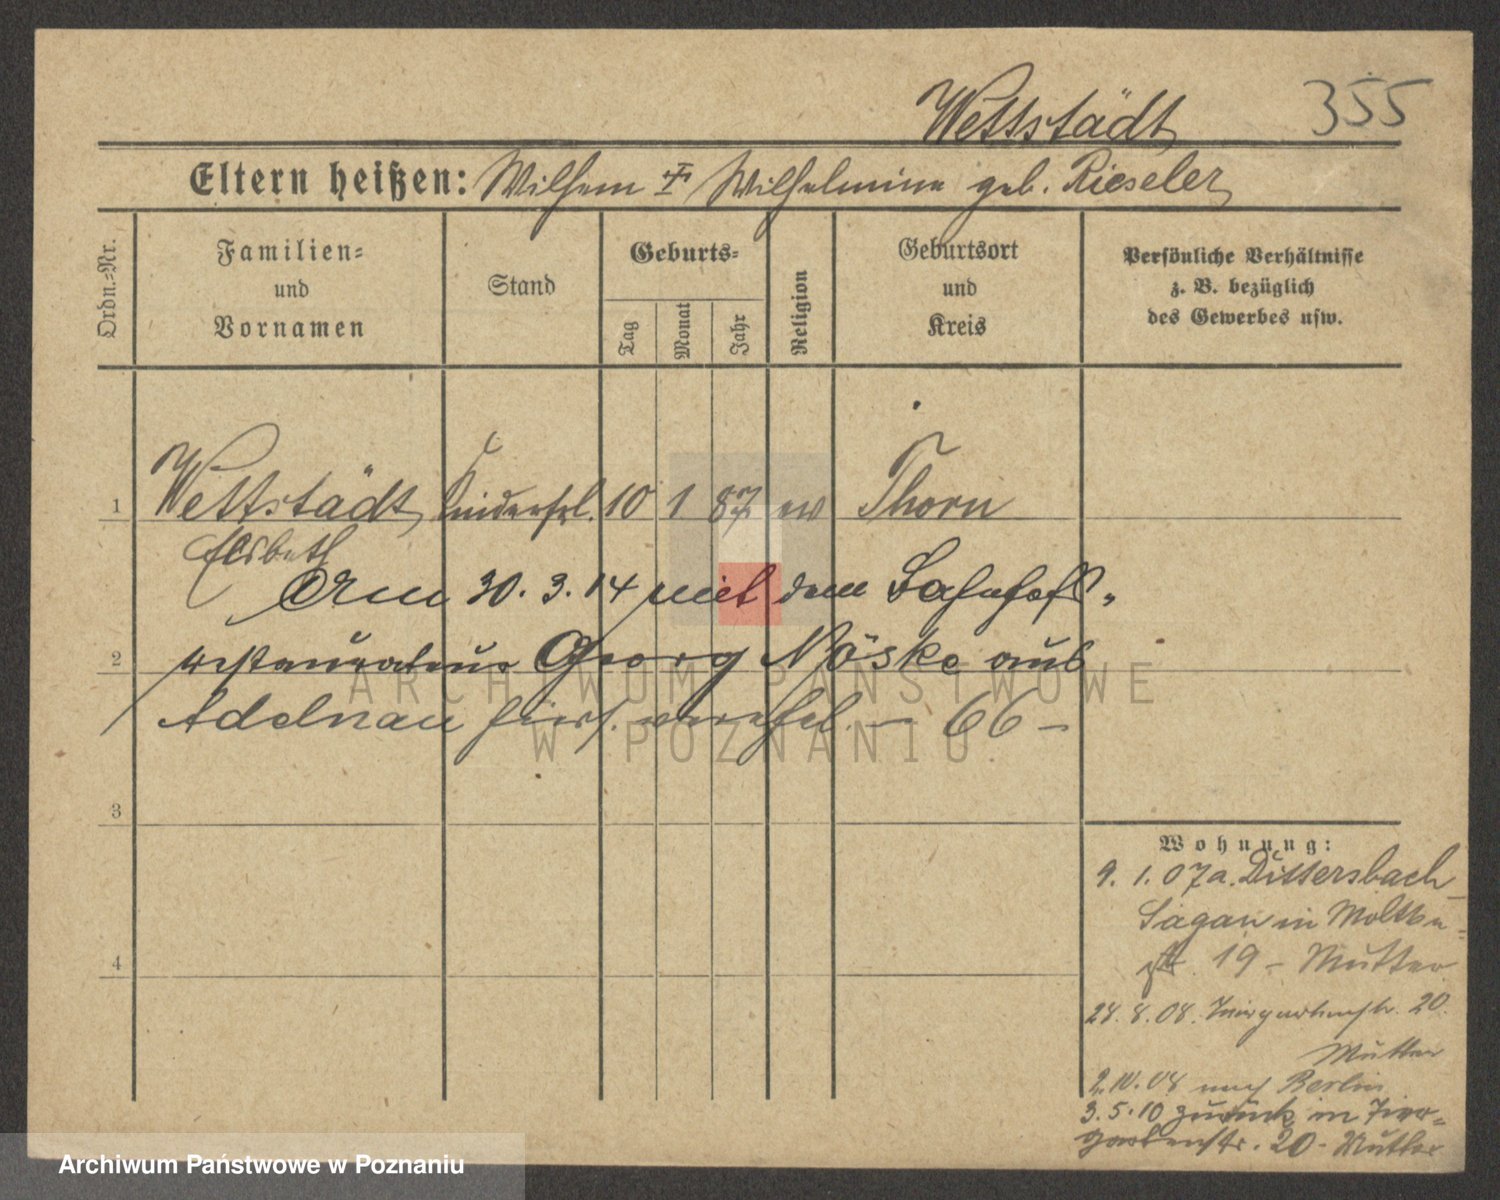 Wettstädt 355
Eltern heißen: Wilhem Wilhelmine geb. Rieseler
Ordn.=Nr.
Familien=
und
Vornamen
Stand
Geburts=
Tag
Monat
Jahr
Religion
Geburtsort
und
Kreis
Persönliche Verhältnisse
z. B. bezüglich
des Gewerbes usw.
1 Wettstädt Kinderfrl. 10 1 87 ev Thorn
Elsbeth
Am 30. 3. 14 mit dem Bahnhofs-
2 restaurateur Georg Nöske aus
Adelnau hier verehel. – 66 –
3
4
Wohnung:
9. 1. 07 a. Dittersbach
Sagan in Moltke=
str. 19 – Mutter
28. 8. 08. Tiergartenstr. 20.
Mutter
2. 10. 08 nach Berlin
3. 5. 10 zurück in Tier=
gartenstr. 20 – Mutter
ARCHIWUM PAŃSTWOWE
W POZNANIU
Archiwum Państwowe w Poznaniu